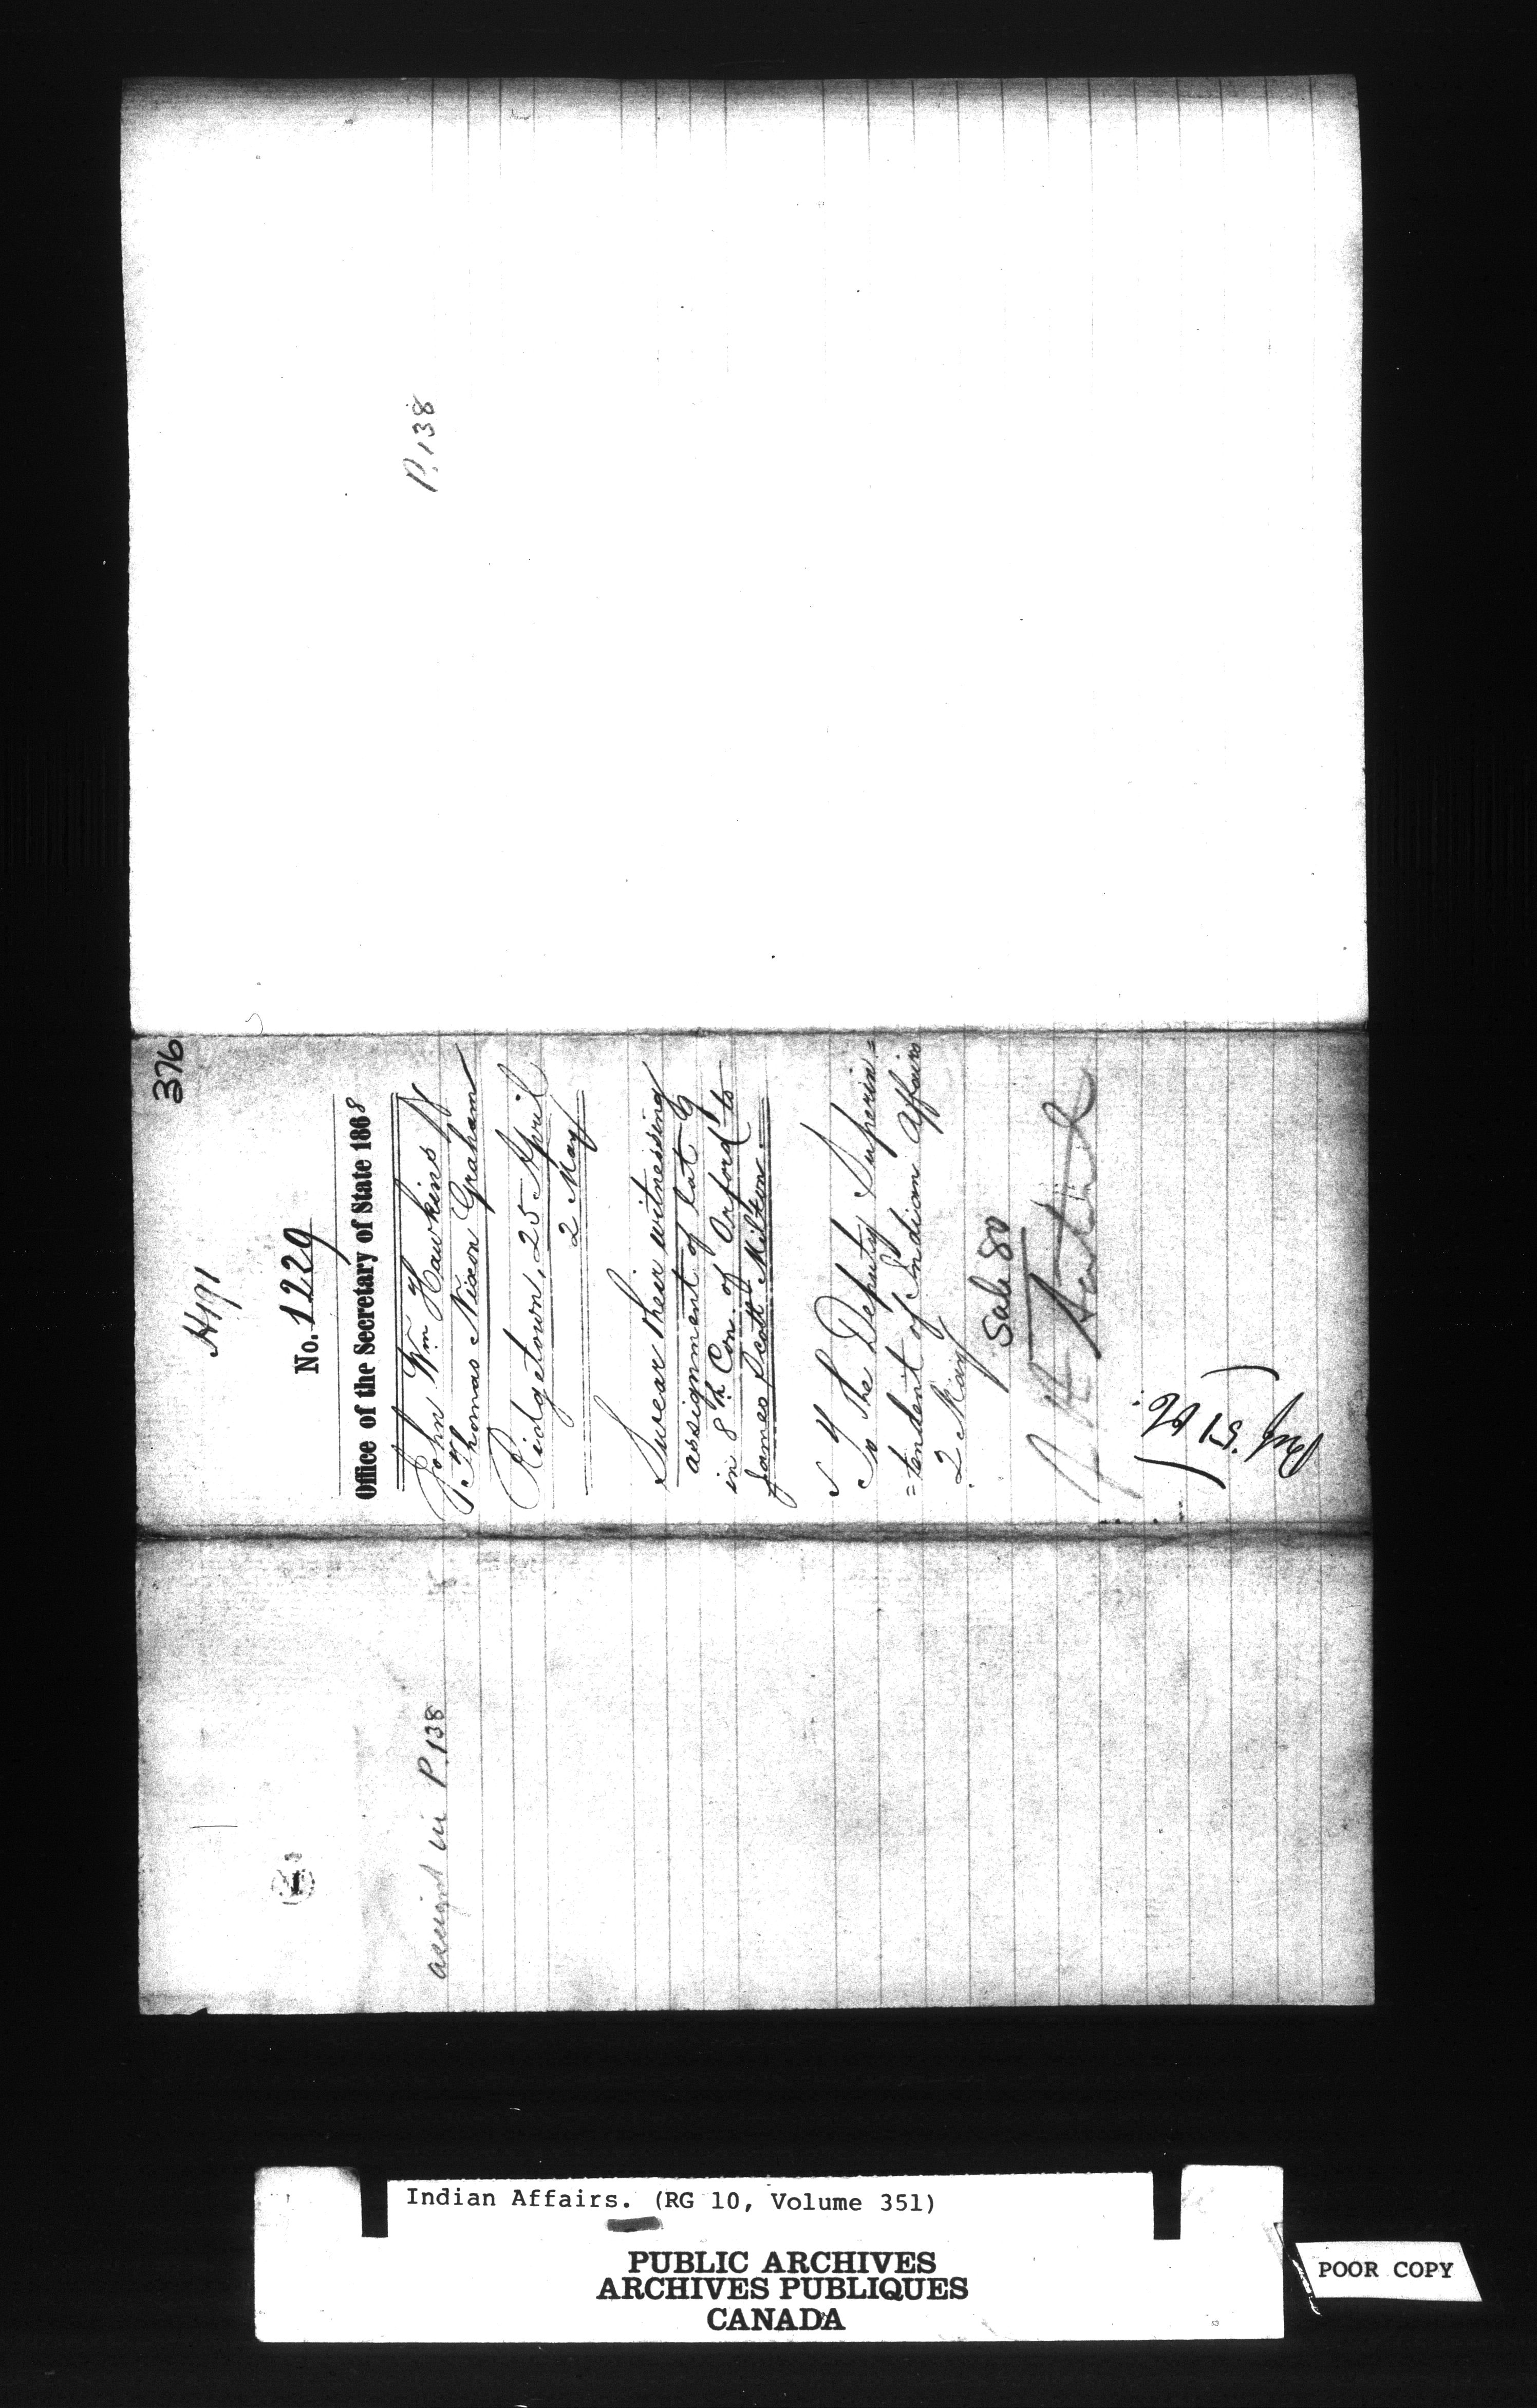 P.138
376
H191
No. 1229
Office of the Secretary of State 1868
John Wm Hawkins &
Thomas Nixon Graham
Ridgetown, 25 April
2 May
Swear their witnessing
assignment of Lot 6
in 8th Con. of Orford to
James Scott Milton.
To The Deputy Superin=
=tendent of Indian Affairs
2 May
Sale 80
assignt in P.138
Indian Affairs. (RG 10, Volume 351)
PUBLIC ARCHIVES
ARCHIVES PUBLIQUES
CANADA
POOR COPY